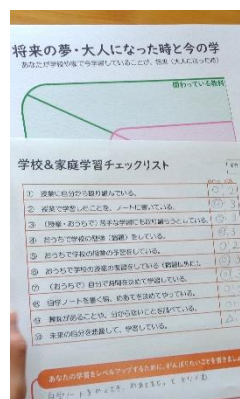 将来の夢・大人になった時と今の学
あなたが学校や家で今学習していることが、将来(大人になった時)
関わっている教科
学校&家庭学習チェックリスト
① 授業に自分から取り組んでいる。
② 授業で学習したことを、ノートに書いている。
③ (授業・おうちで)苦手な学習にも取り組もうとしている。
④ おうちで学校の宿題(課題)をしている。
⑤ おうちで学校の授業の予習をしている。
⑥ おうちで学校の授業の復習をしている(宿題以外に)。
⑦ (おうちで)自分で時間を決めて学習している。
⑧ 自学ノートを書く時、めあてを決めてやっている。
⑨ 興味があることや、分からないことを調べている。
⑩ 未来の自分を想像して、学習している。
あなたの学習をレベルアップするために、がんばりたいことを書きまし